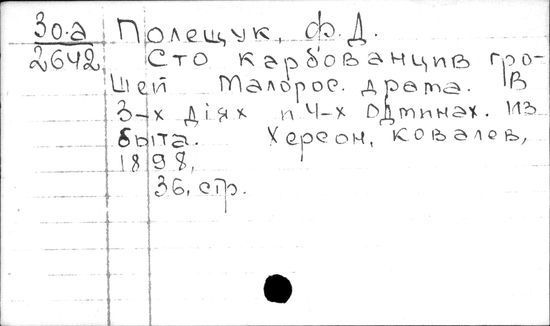 30.а Полещук, Ф. Д.
2642 Сто карбованцив гро-
шей Малорос. драма. В
3-х діях и 4-х Одминах. Из
быта. Херсон, Ковалев,
1898,
36, стр.